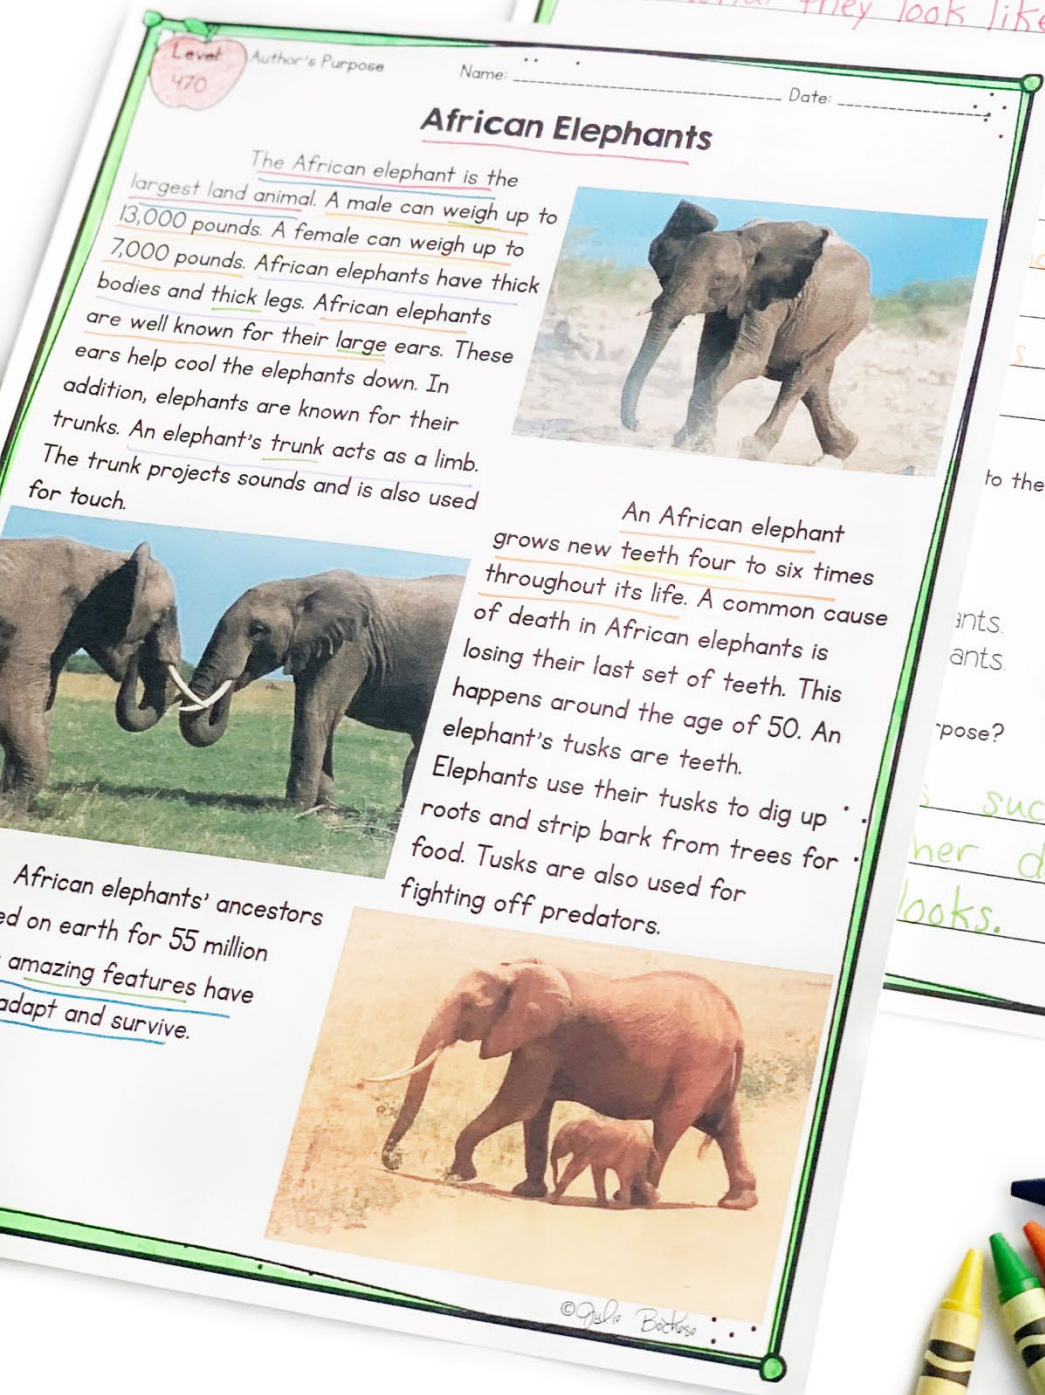 Level
470
Author's Purpose
Name:
Date:
African Elephants
The African elephant is the
largest land animal. A male can weigh up to
13,000 pounds. A female can weigh up to
7,000 pounds. African elephants have thick
bodies and thick legs. African elephants
are well known for their large ears. These
ears help cool the elephants down. In
addition, elephants are known for their
trunks. An elephant's trunk acts as a limb.
The trunk projects sounds and is also used
for touch.
An African elephant
grows new teeth four to six times
throughout its life. A common cause
of death in African elephants is
losing their last set of teeth. This
happens around the age of 50. An
elephant's tusks are teeth.
Elephants use their tusks to dig up
roots and strip bark from trees for
food. Tusks are also used for
fighting off predators.
African elephants' ancestors
ed on earth for 55 million
amazing features have
adapt and survive.
they look like
to the
ants.
ants.
pose?
suc
her d
looks.